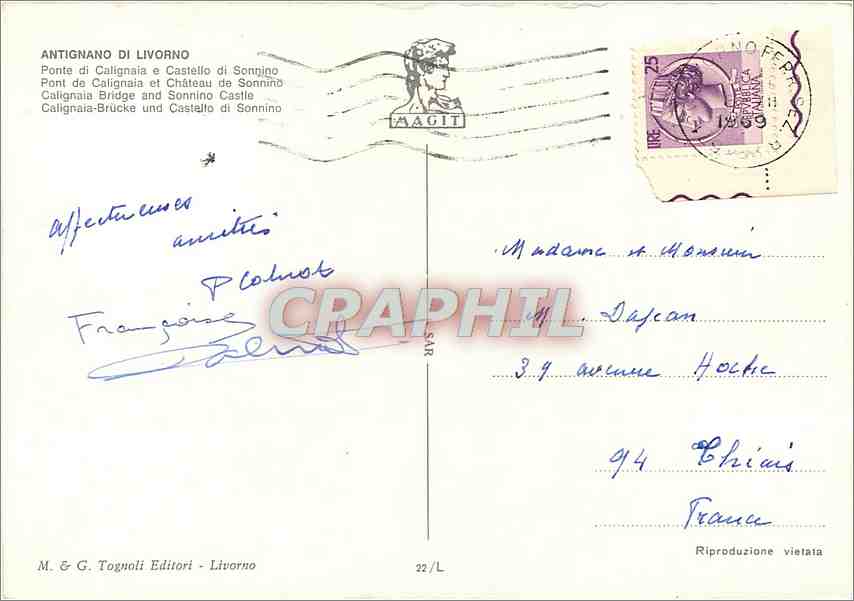 ANTIGNANO DI LIVORNO
Ponte di Calignaia e Castello di Sonnino
Pont de Calignaia et Château de Sonnino
Calignaia Bridge and Sonnino Castle
Calignaia-Brücke und Castello di Sonnino
MAGIT
LIRE 25
1969
affectueuses
amitiés
Françoise
CRAPHIL
SAR
Madame et Monsieur
M. Dajean
39 avenue Hoche
94 Thiais
France
Riproduzione vietata
M. & G. Tognoli Editori - Livorno
22/L